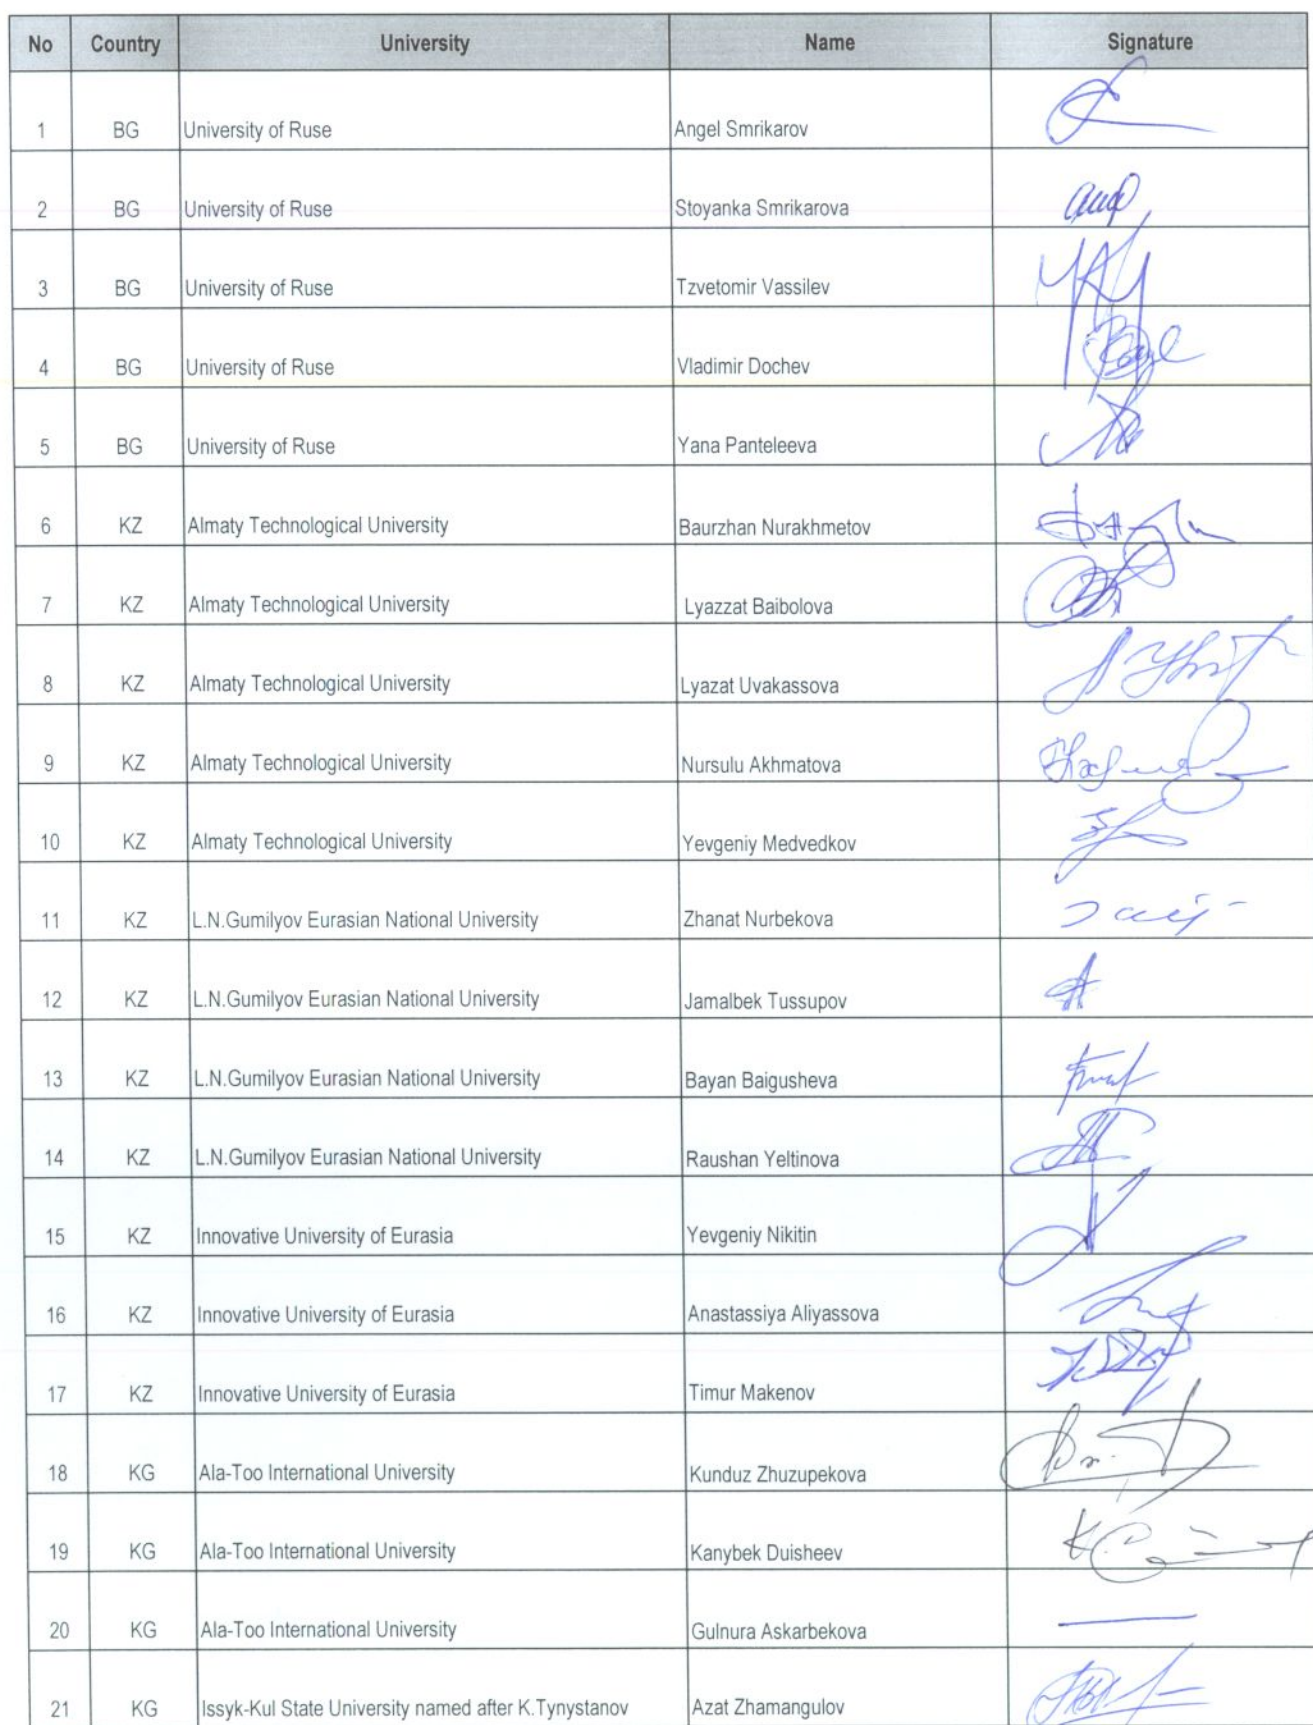 No Country University Name Signature
1 BG University of Ruse Angel Smrikarov
2 BG University of Ruse Stoyanka Smrikarova
3 BG University of Ruse Tzvetomir Vassilev
4 BG University of Ruse Vladimir Dochev
5 BG University of Ruse Yana Panteleeva
6 KZ Almaty Technological University Baurzhan Nurakhmetov
7 KZ Almaty Technological University Lyazzat Baibolova
8 KZ Almaty Technological University Lyazat Uvakassova
9 KZ Almaty Technological University Nursulu Akhmatova
10 KZ Almaty Technological University Yevgeniy Medvedkov
11 KZ L.N.Gumilyov Eurasian National University Zhanat Nurbekova
12 KZ L.N.Gumilyov Eurasian National University Jamalbek Tussupov
13 KZ L.N.Gumilyov Eurasian National University Bayan Baigusheva
14 KZ L.N.Gumilyov Eurasian National University Raushan Yeltinova
15 KZ Innovative University of Eurasia Yevgeniy Nikitin
16 KZ Innovative University of Eurasia Anastassiya Aliyassova
17 KZ Innovative University of Eurasia Timur Makenov
18 KG Ala-Too International University Kunduz Zhuzupekova
19 KG Ala-Too International University Kanybek Duisheev
20 KG Ala-Too International University Gulnura Askarbekova
21 KG Issyk-Kul State University named after K.Tynystanov Azat Zhamangulov